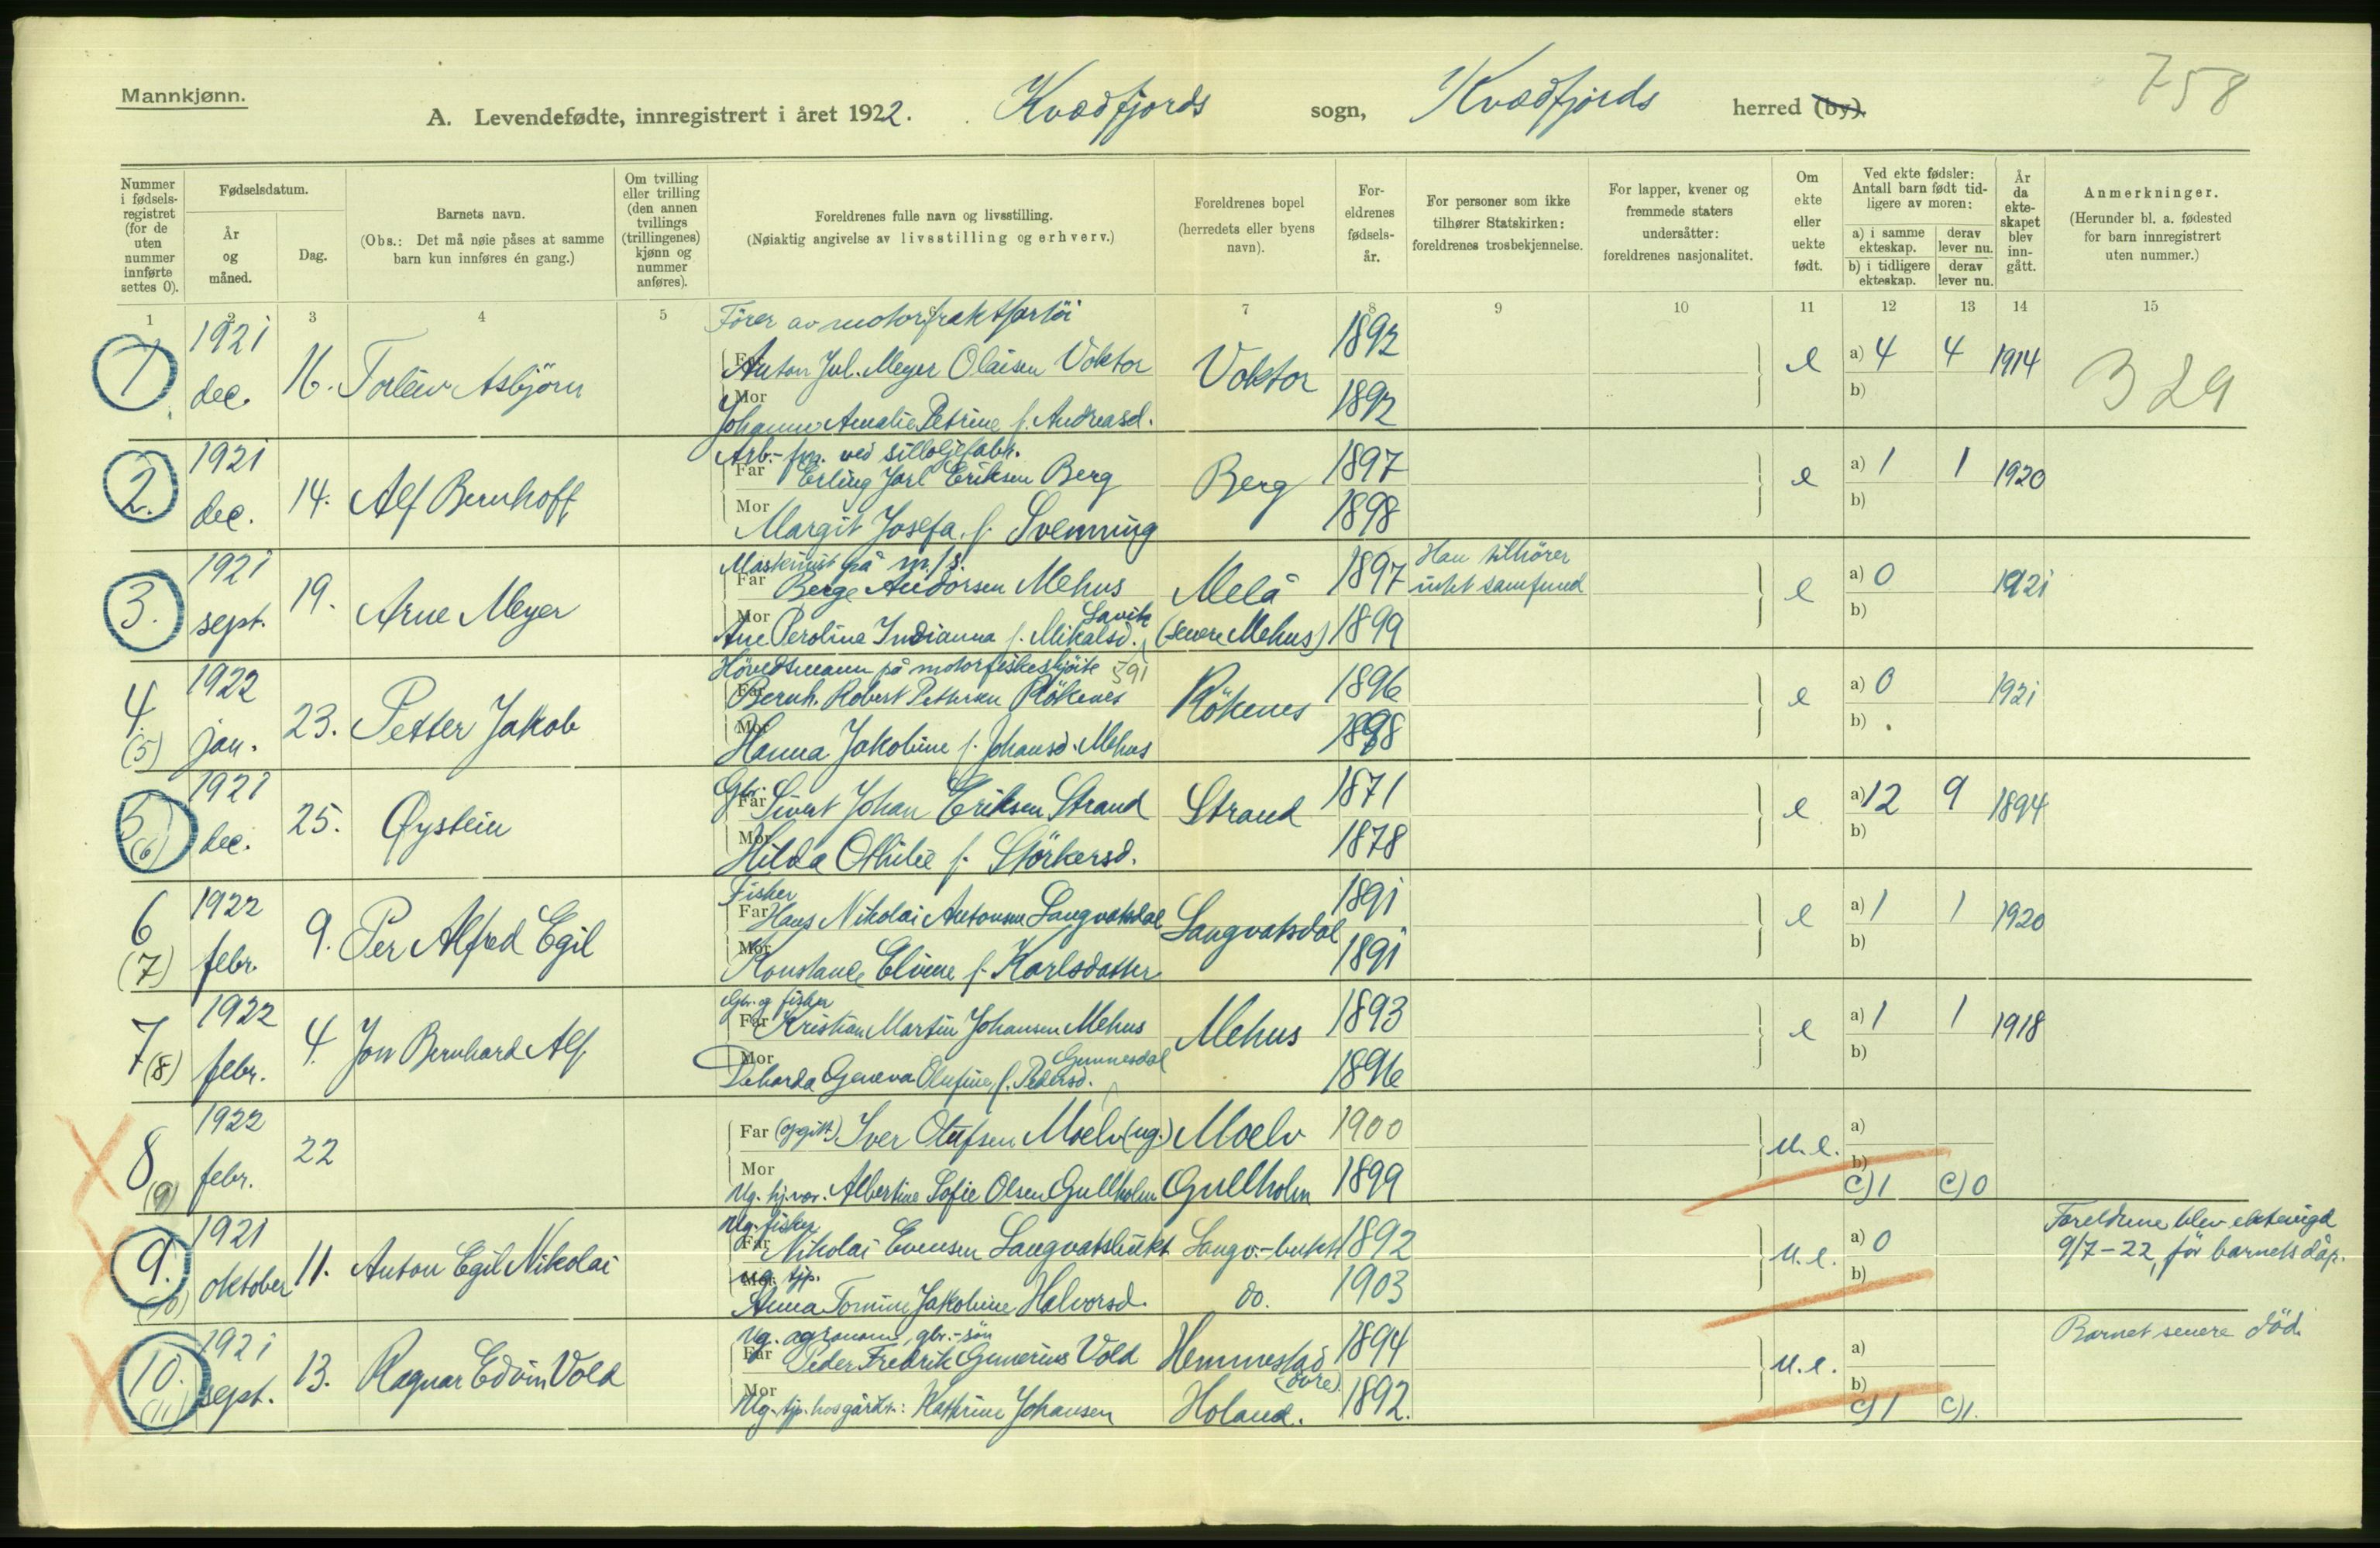 Mannkjønn.
758
A. Levendefødte, innregistrert i året 1922. Kvædfjords sogn, Kvædfjords herred (by).
Nummer i fødsels-registret (for de uten nummer innførte settes 0).
Fødselsdatum.
År og måned.
Dag.
Barnets navn.
(Obs.: Det må nøie påses at samme barn kun innføres én gang.)
Om tvilling eller trilling (den annen tvillings (trillingenes) kjønn og nummer anføres).
Foreldrenes fulle navn og livsstilling.
(Nøiaktig angivelse av livsstilling og erhverv.)
Foreldrenes bopel (herredets eller byens navn).
For-eldrenes fødsels-år.
For personer som ikke tilhører Statskirken: foreldrenes trosbekjennelse.
For lapper, kvener og fremmede staters undersåtter: foreldrenes nasjonalitet.
Om ekte eller uekte født.
Ved ekte fødsler: Antall barn født tid-ligere av moren:
a) i samme ekteskap.
derav lever nu.
b) i tidligere ekteskap.
derav lever nu.
År da ekte-skapet blev inn-gått.
Anmerkninger.
(Herunder bl. a. fødested for barn innregistrert uten nummer.)
1 2 3 4 5 7 8 9 10 11 12 13 14 15
Förer av motorfraktfartöi
1 1921 dec. 16. Torleiv Asbjörn
Far Anton Jul. Meyer Olaisen Voktor Voktor 1892 e a) 4 4 1914 329
Mor Johanne Amalie Petrine f. Andreasd. 1892 b)
Arb.-fm. ved silloljefabr.
2. 1921 dec. 14. Alf Bernhoff
Far Erling Jarl Eriksen Berg Berg 1897 e a) 1 1 1920
Mor Margit Josefa f. Svenning 1898 b)
Maskinist på m/s.
3. 1921 sept. 19. Arne Meyer
Far Berge Andorsen Mehus Melå 1897 Han tilhörer intet samfund e a) 0 1921
Mor Ane Peroline Indianna f. Mikalsd. Lavik (senere Mehus) 1899 b)
Hövedsmann på motorfiskeskjöite 391
4. (5) 1922 jan. 23. Petter Jakob
Far Bernh. Robert Pettersen Rökenes Rökenes 1896 e a) 0 1921
Mor Hanna Jakobine f. Johansd. Mehus 1898 b)
5 (6) 1921 dec. 25. Øystein
Gbr. Far Sivert Johan Eriksen Strand Strand 1871 e a) 12 9 1894
Mor Hilda Othilie f. Störkersd. 1878 b)
Fisker
6 (7) 1922 febr. 9. Per Alfred Egil
Far Hans Nikolai Antonsen Langvatsdal Langvatsdal 1891 e a) 1 1 1920
Mor Konstance Elvine f. Karlsdatter 1891 b)
Gbr. og fisker
7 (8) 1922 febr. 4. Jon Bernhard Alf
Far Kristian Martin Johansen Mehus Mehus 1893 e a) 1 1 1918
Mor Geneva Olufine f. Pedersd. Gunnesdal 1896 b)
8 (9) 1922 febr. 22
Far (opgitt) Iver Olufsen Moelv (ug.) Moelv 1900 u.e. a)
Mor Ug. hj.vær. Albertine Sofie Olsen Gullholm Gullholm 1899 b) c) 1 c) 0
Ug. fisker
9. (10) 1921 oktober 11. Anton Egil Nikolai
Far Nikolai Evensen Langvatsbukt Langv.-bukt 1892 u.e. a) 0 Foreldrene blev ektevigd 9/7-22, för barnets dåp.
Ug. tjp.
Mor Anna Tomine Jakobine Halvorsd. do. 1903 b)
Ug. agronom, gbr.-sön
10. (11) 1921 sept. 13. Ragnar Edvin Vold
Far Peder Fredrik Gunerius Vold Hemmestad (övre) 1894 u.e. a) Barnet senere död.
Mor Ug. tjp. hos gårdbr.: Kathrine Johansen Holand. 1892. b) c) 1 c) 1.